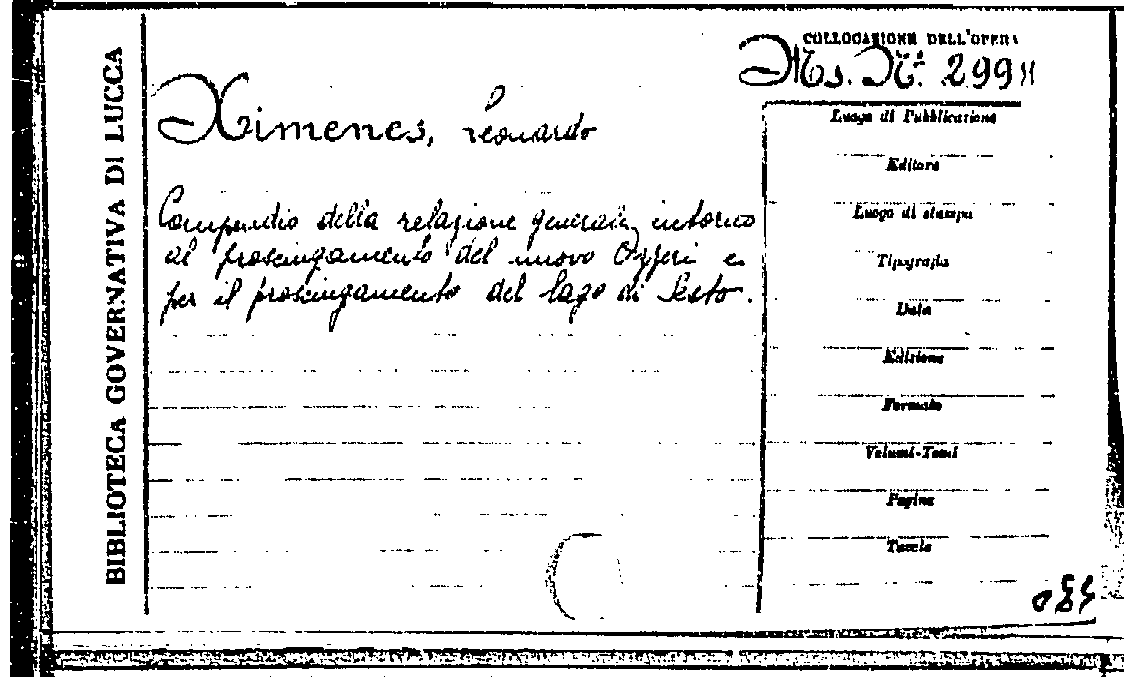 BIBLIOTECA GOVERNATIVA DI LUCCA
COLLOCAZIONE DELL'OPERA
Ms. N.° 299
Ximenes, Leonardo
Compendio della relazione generale intorno
al proscingamento del nuovo Ozzeri e
per il proscingamento del lago di Sesto.
Luogo di Pubblicazione
Editore
Luogo di stampa
Tipografia
Data
Edizione
Formato
Volumi-Tomi
Pagine
Tavole